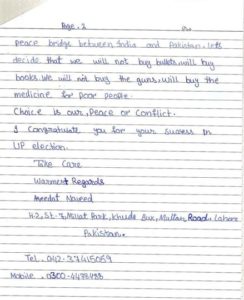 Page. 2
peace bridge between India and Pakistan. lets
decide that we will not buy bullets, will buy
books. We will not buy the guns, will buy the
medicine for poor people.
Choice is our, Peace or Conflict.
I Congratulate you for your Success in
UP election
Take Care
Warmest Regards
Naveed
H-2, St-7, Milat Park, Khuda Bux, Multan Road, Lahore
Pakistan.
Tel. 042-37415059
Mobile. 0300-4478788